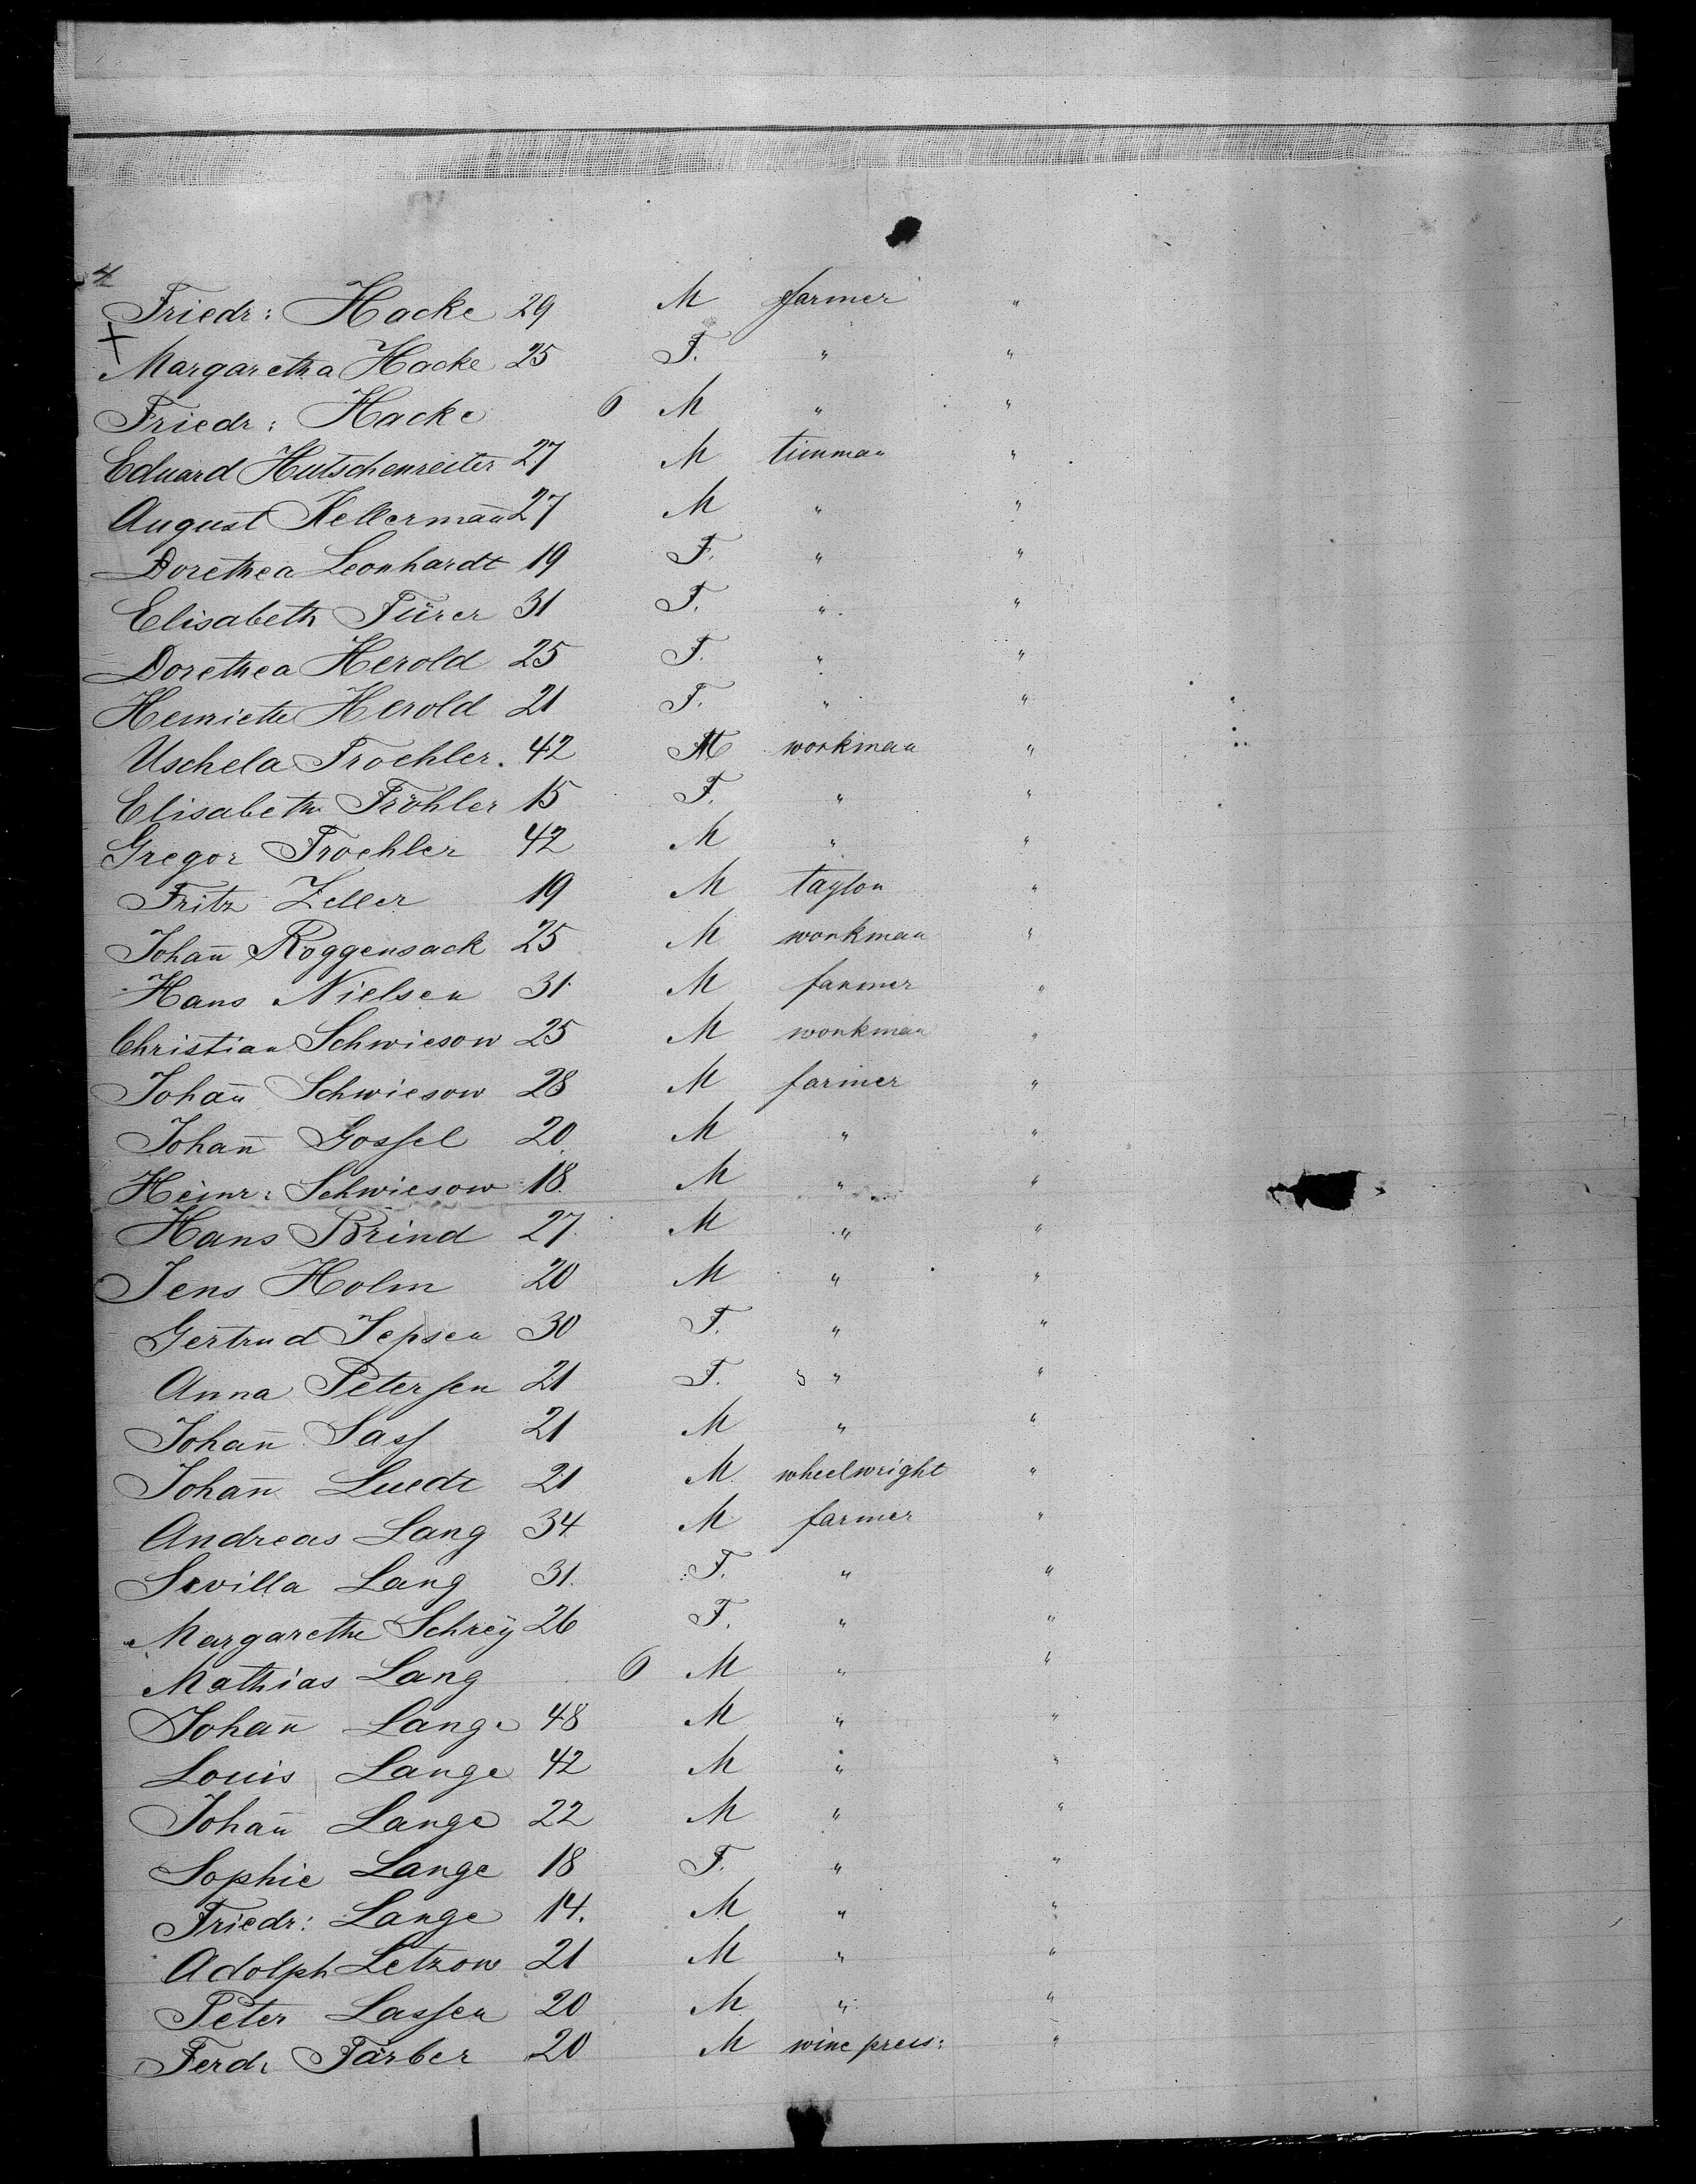 4
Friedr: Hacke 29 M farmer "
+
Margaretha Hacke 25 F. " "
Friedr: Hacke 6 M " "
Eduard Hutschenreiter 27 M tinman "
August Kellermañ 27 M " "
Dorethea Leonhardt 19 F. " "
Elisabeth Fürer 31 F. " "
Dorethea Herold 25 F. " "
Henriette Herold 21 F. " "
Uschela Froehler. 42 M workman "
Elisabeth Fröhler 15 F. " "
Gregor Froehler 42 M " "
Fritz Zeller 19 M taylor "
Johañ Roggensack 25 M workman "
Hans Nielsen 31 M farmer "
Christian Schwiesow 25 M workman "
Johañ Schwiesow 28 M farmer "
Johañ Gossel 20 M " "
Heinr: Schwiesow 18 M " "
Hans Brind 27 M " "
Jens Holm 20 M " "
Gertrud Jepsen 30 F. " "
Anna Petersen 21 F. " "
Johañ Sass 21 M " "
Johañ Luedt 21 M wheelwright "
Andreas Lang 34 M farmer "
Sevilla Lang 31. F. " "
Margarethe Schrey 26 F. " "
Mathias Lang 6 M " "
Johañ Lange 48 M " "
Louis Lange 42 M " "
Johañ Lange 22 M " "
Sophie Lange 18 F. " "
Friedr: Lange 14. M " "
Adolph Letzow 21 M " "
Peter Lassen 20 M " "
Ferd: Färber 20 M wine press: "